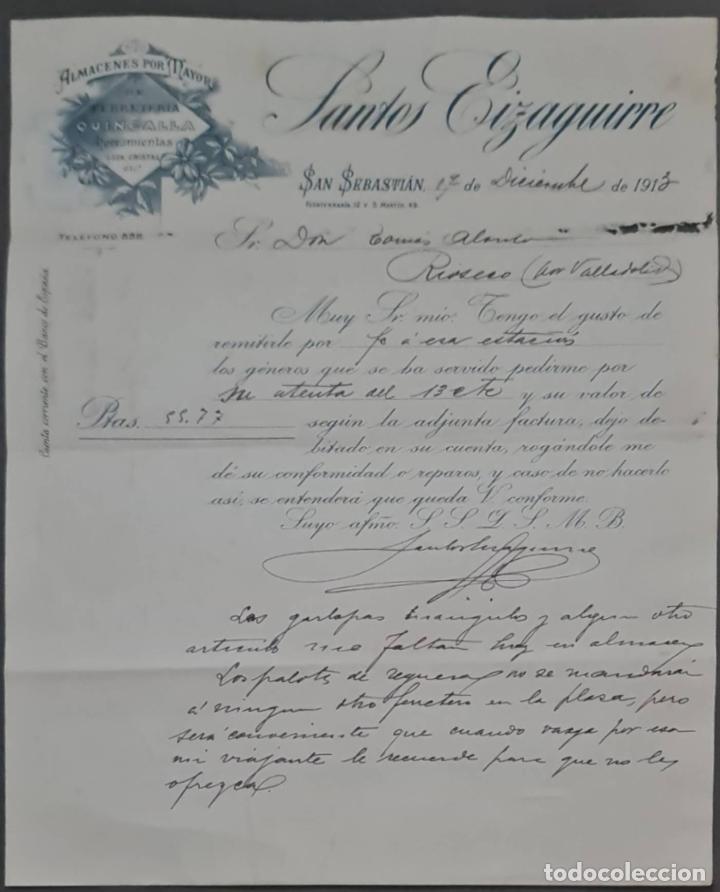 ALMACENES POR MAYOR
DE
FERRETERIA
QUINCALLA
Herramientas
LOZA, CRISTAL
ETC.
Santos Eizaguirre
SAN SEBASTIÁN, 17 de Diciembre de 1913
FUENTERRABÍA, 12 Y S. MARTÍN, 49.
TELÉFONO 558.
Sr. Don Tomás Alonso
Rioseco (por Valladolid)
Cuenta corriente con el Banco de España
Muy Sr. mio: Tengo el gusto de
remitirle por fc á esa estación
los géneros que se ha servido pedirme por
su atenta del 13 cte y su valor de
Ptas. 55.77 según la adjunta factura, dejo de-
bitado en su cuenta, rogándole me
dé su conformidad o reparos, y caso de no hacerlo
así, se entenderá que queda V. conforme.
Suyo afmo. S. S. Q. S. M. B.
Santos Eizaguirre
Las garlopas triángulo y algun otro
articulo faltan hoy en almacen
Los palotes de no se mandarán
á ningun otro ferretero en la plaza, pero
será conveniente que cuando vaya por esa
mi viajante le recuerde para que no les
ofrezca.
todocoleccion